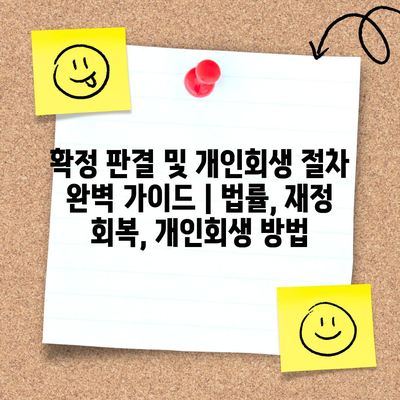 확정 판결 및 개인회생 절차
완벽 가이드 | 법률, 재정
회복, 개인회생 방법